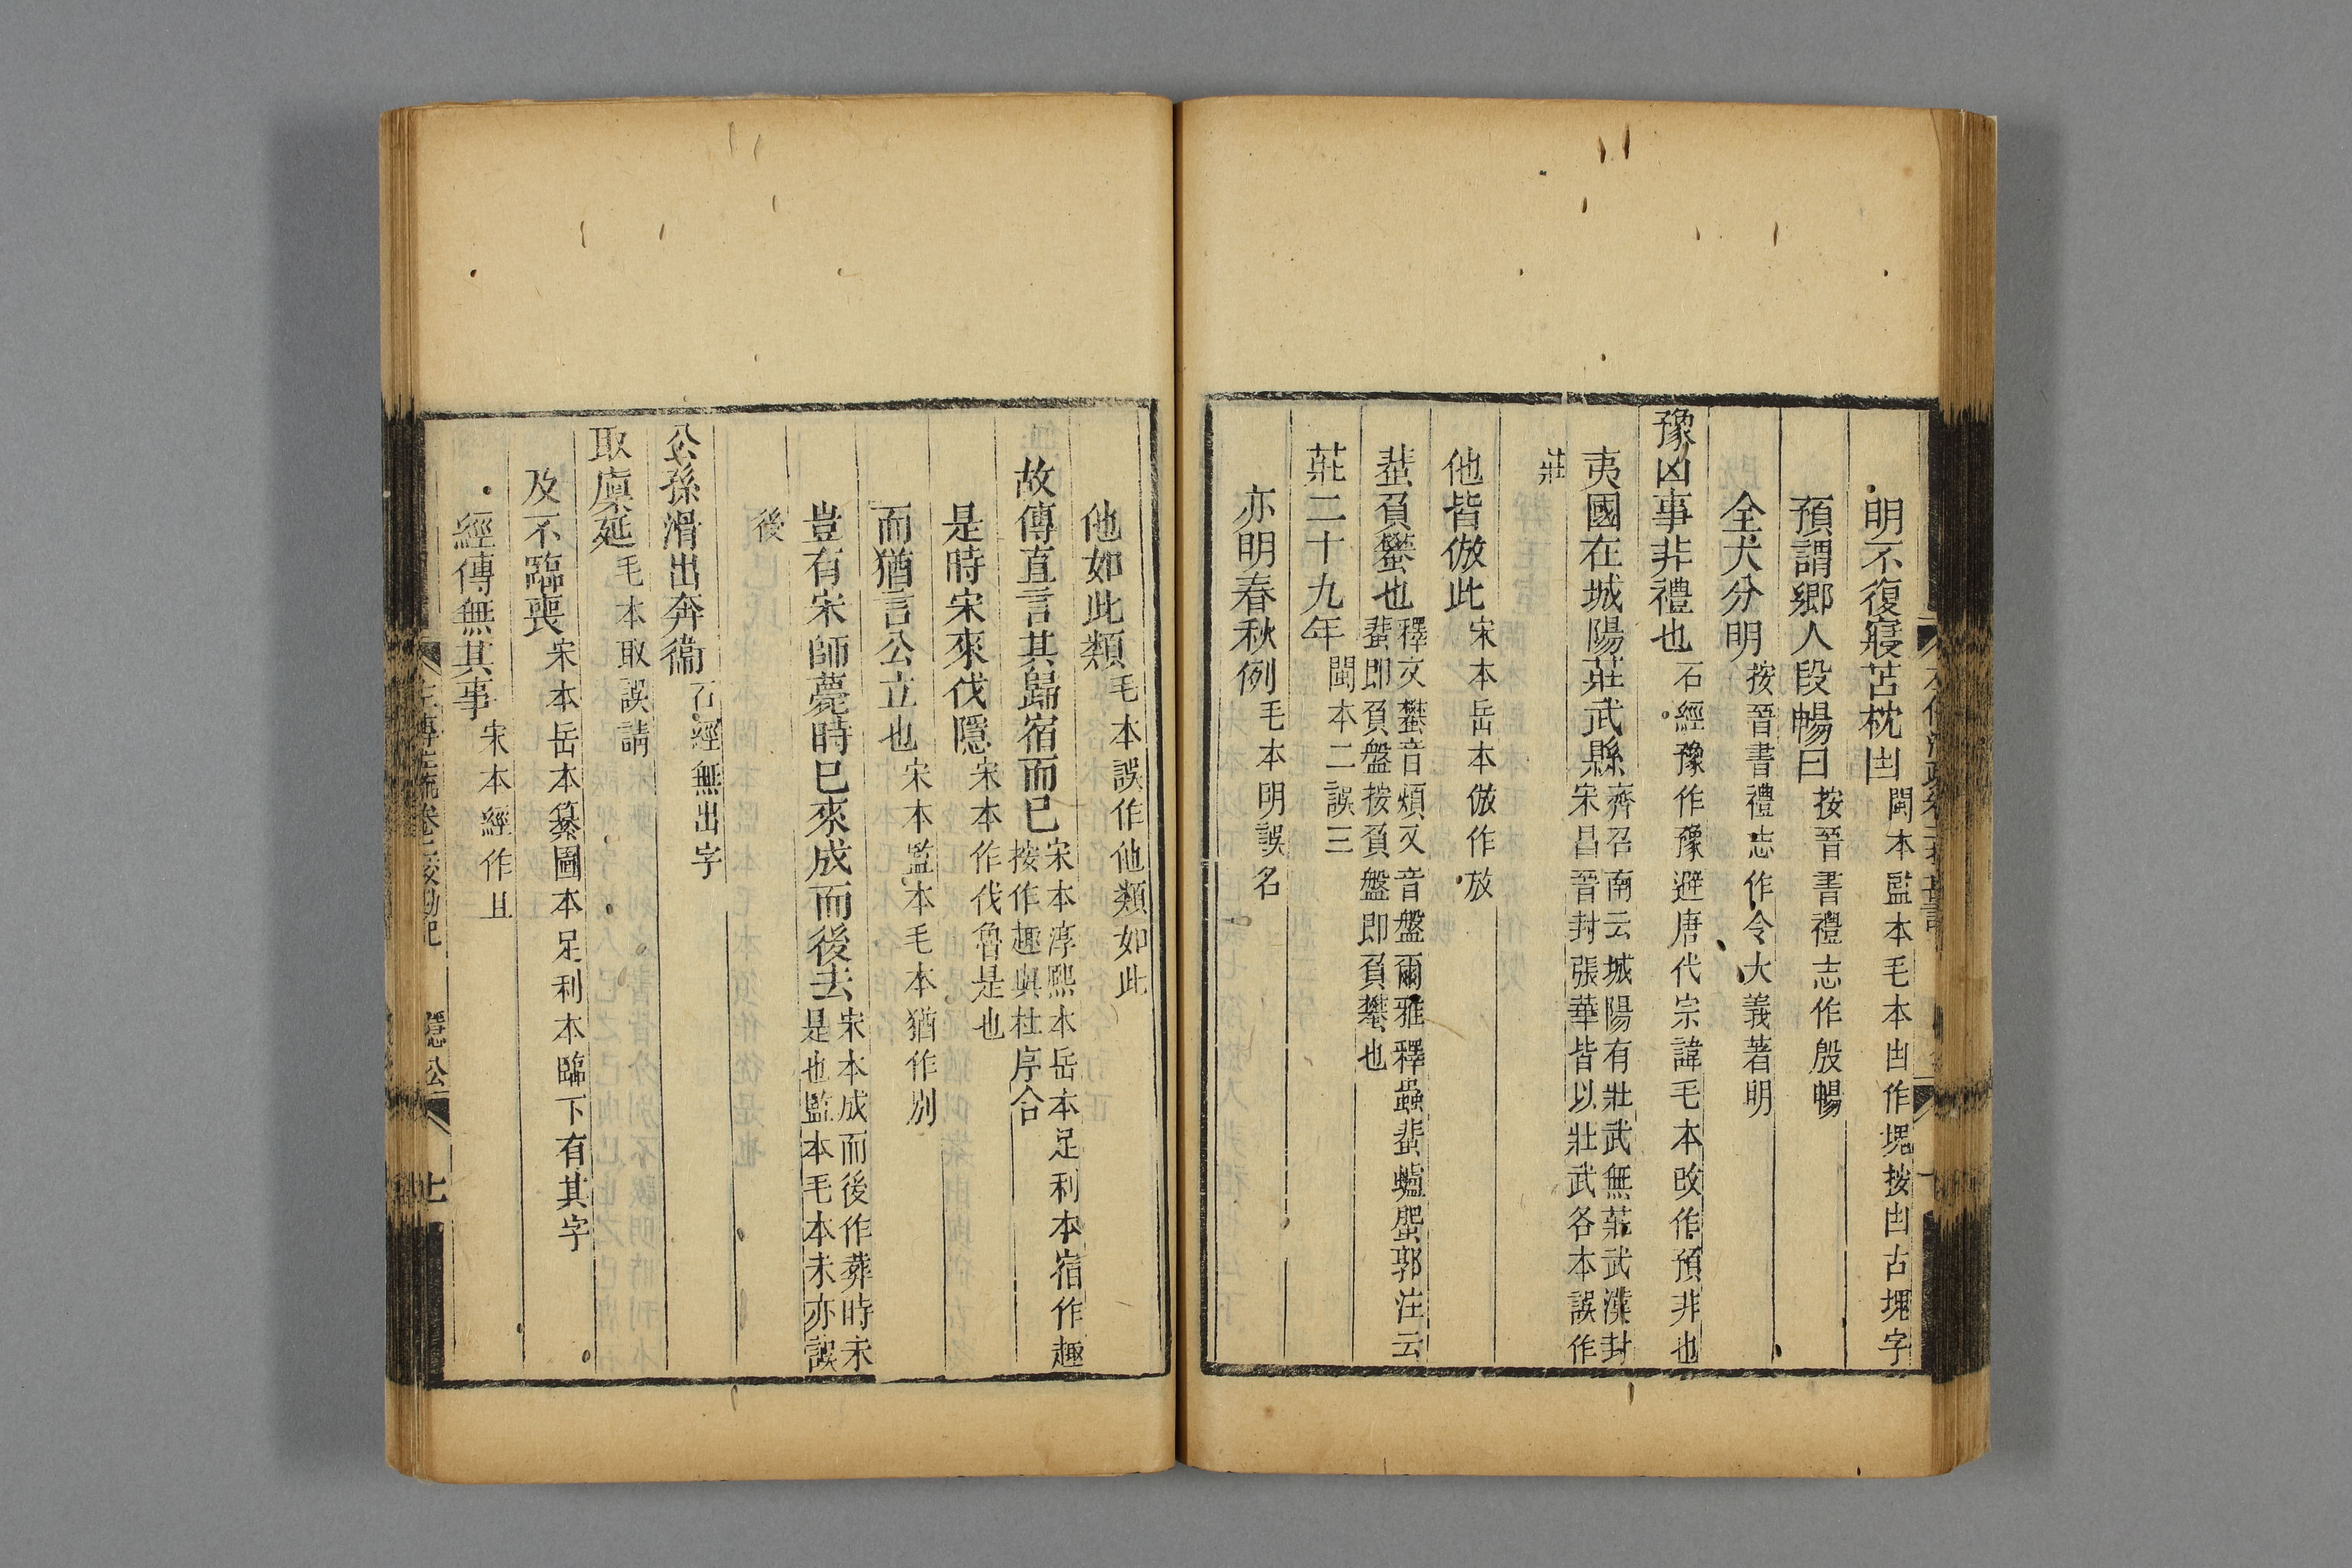 明不復寢苫枕凷閩本監本毛本凷作塊按凷古塊字
預謂鄉人段暢曰按晉書禮志作殷暢
全大分明按晉書禮志作令大義著明
豫凶事非禮也石經豫作豫避唐代宗諱毛本改作預非也
夷國在城陽莊武縣齊召南云城陽有壯武無莊武漢封
宋昌晉封張華皆以壯武各本誤作
莊
他皆倣此宋本岳本倣作放
蜚負蠜也釋文蠜音煩又音盤爾雅釋蟲蜚蠦蜰郭注云
蜚即負盤按負盤即負蠜也
莊二十九年閩本二誤三
亦明春秋例毛本明誤名
他如此類毛本誤作他類如此
故傳直言其歸宿而已宋本淳熙本岳本足利本宿作趣
按作趣與杜序合
是時宋來伐隱宋本作伐魯是也
而猶言公立也宋本監本毛本猶作別
豈有宋師薨時已來成而後去宋本成而後作葬時未
是也監本毛本未亦誤
後
公孫滑出奔衞石經無出字
取廩延毛本取誤請
及不臨喪宋本岳本纂圖本足利本臨下有其字
經傳無其事宋本經作且
左傳注疏卷二校勘記 隱公 七